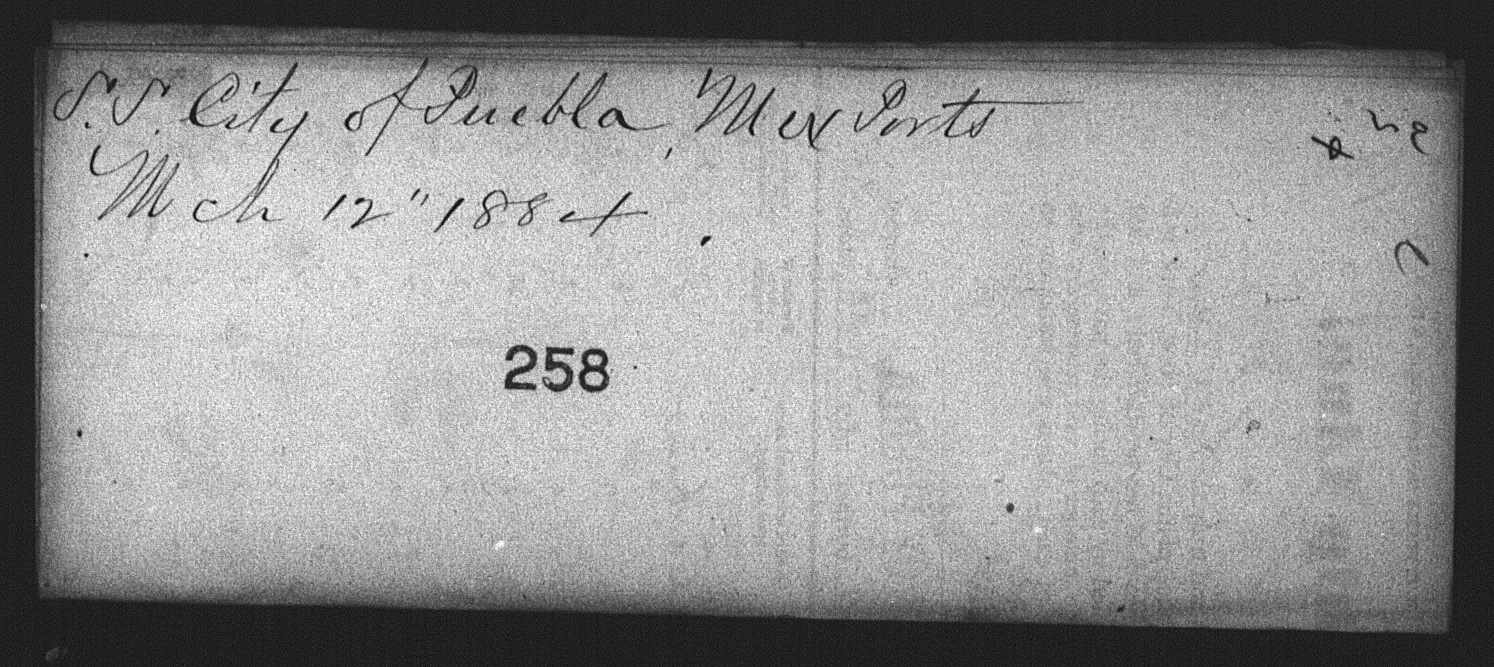 S.S. City of Puebla, Mex Ports
Mch 12" 1884.
258